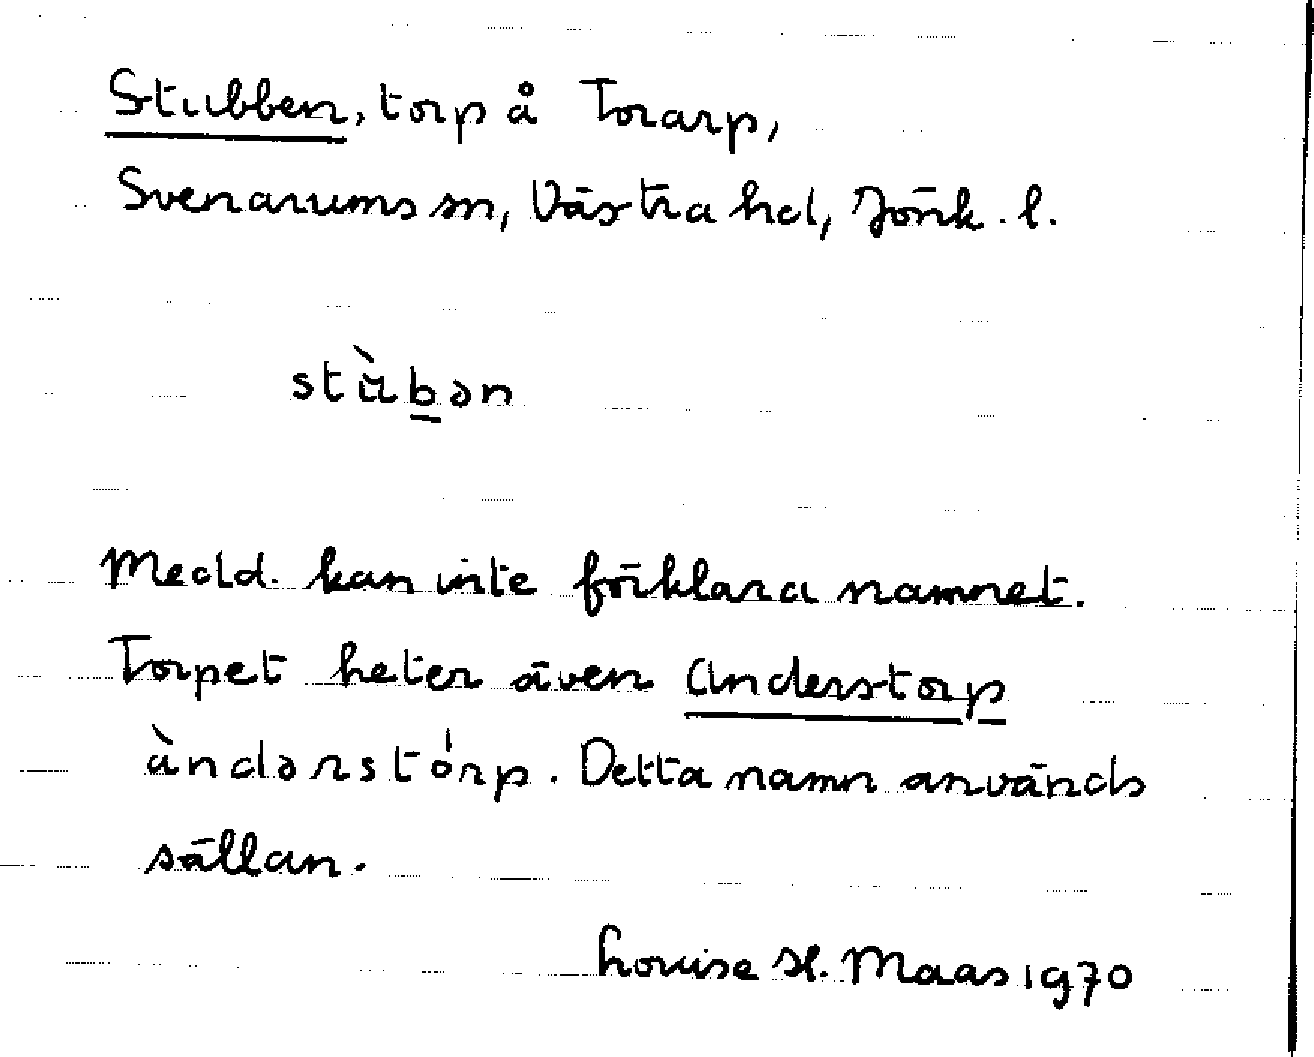 Stubben, torp å Torarp,
Svenarums sn, Västra hd, Jönk. l.
stùbən
Medd. kan inte förklara namnet.
Torpet heter även Anderstorp
àndərstórp. Detta namn används
sällan.
Louise H. Maas 1970